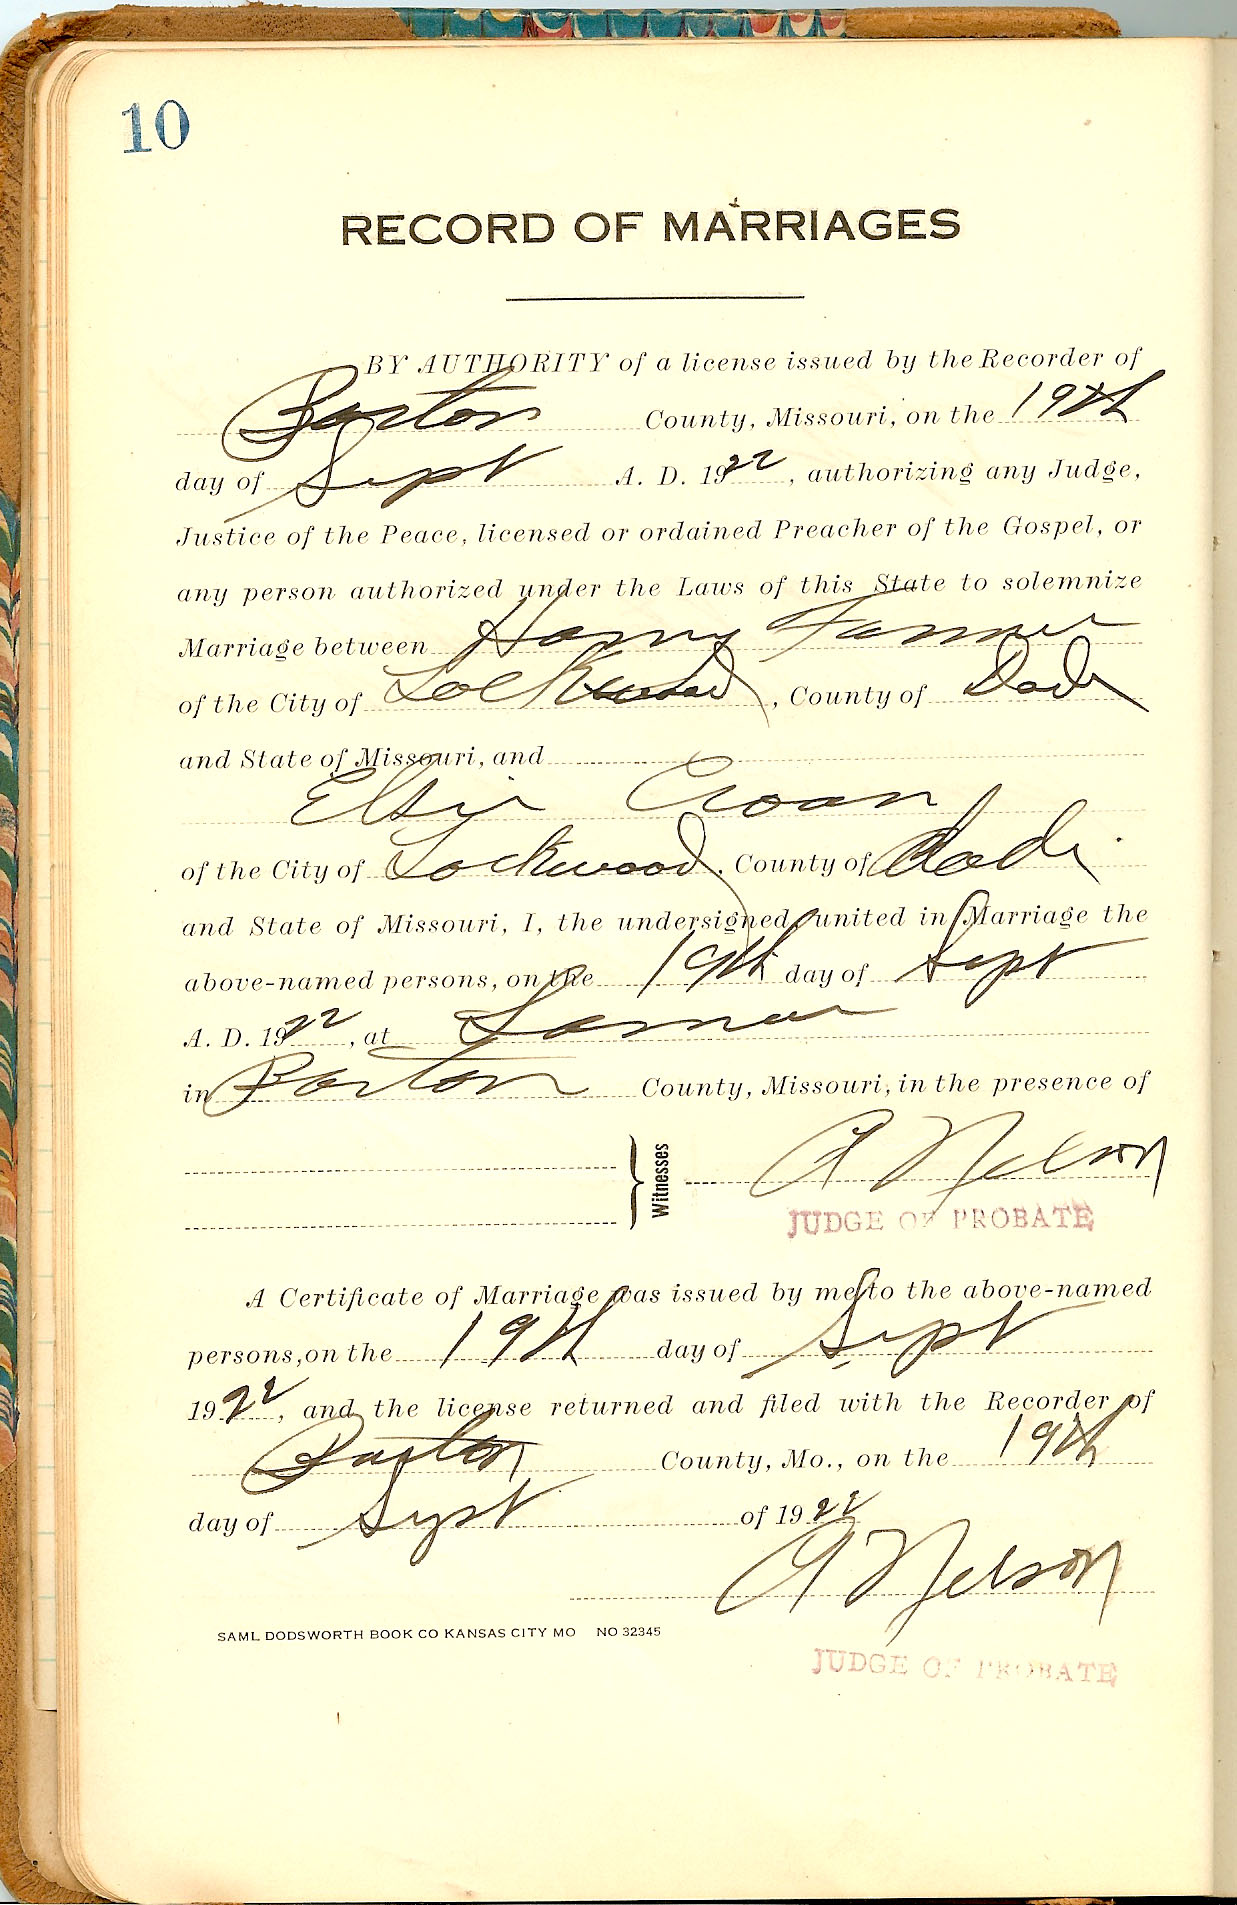 10
RECORD OF MARRIAGES
BY AUTHORITY of a license issued by the Recorder of
Barton County, Missouri, on the 19th
day of Sept A. D. 1922, authorizing any Judge,
Justice of the Peace, licensed or ordained Preacher of the Gospel, or
any person authorized under the Laws of this State to solemnize
Marriage between Harry Farmer
of the City of Lockwood, County of Dade
and State of Missouri, and
Elsie Croan
of the City of Lockwood, County of Dade
and State of Missouri, I, the undersigned, united in Marriage the
above-named persons, on the 19th day of Sept
A. D. 1922, at Lamar
in Barton County, Missouri, in the presence of
Witnesses
A Nelson
JUDGE OF PROBATE
A Certificate of Marriage was issued by me to the above-named
persons, on the 19th day of Sept
1922, and the license returned and filed with the Recorder of
Barton County, Mo., on the 19th
day of Sept of 1922
A Nelson
SAML DODSWORTH BOOK CO KANSAS CITY MO NO 32345
JUDGE OF PROBATE